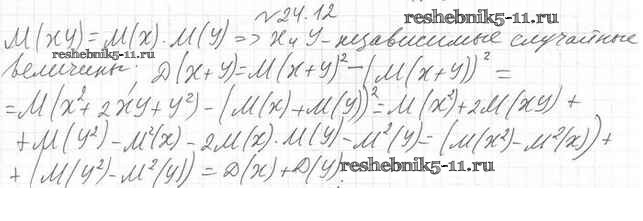 №24.12
reshebnik5-11.ru
M(xy)=M(x)·M(y) => x и y - независимые случайные
величины; D(x+y)=M(x+y)²-(M(x+y))²=
=M(x²+2xy+y²)-(M(x)+M(y))²=M(x²)+2M(xy)+
+M(y²)-M²(x)-2M(x)·M(y)-M²(y)=(M(x²)-M²(x))+
+(M(y²)-M²(y))=D(x)+D(y).
reshebnik5-11.ru